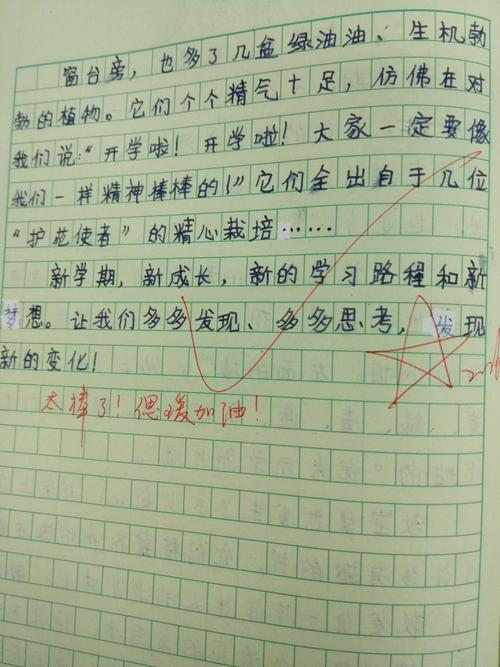 窗台旁，也多了几盆绿油油、生机勃
勃的植物。它们个个精气十足，仿佛在对
我们说：“开学啦！开学啦！大家一定要像
我们一样精神棒棒的！”它们全出自于几位
“护花使者”的精心栽培……
新学期，新成长，新的学习路程和新
梦想。让我们多多发现、多多思考，发现
新的变化！
太棒了！偲瑗加油！